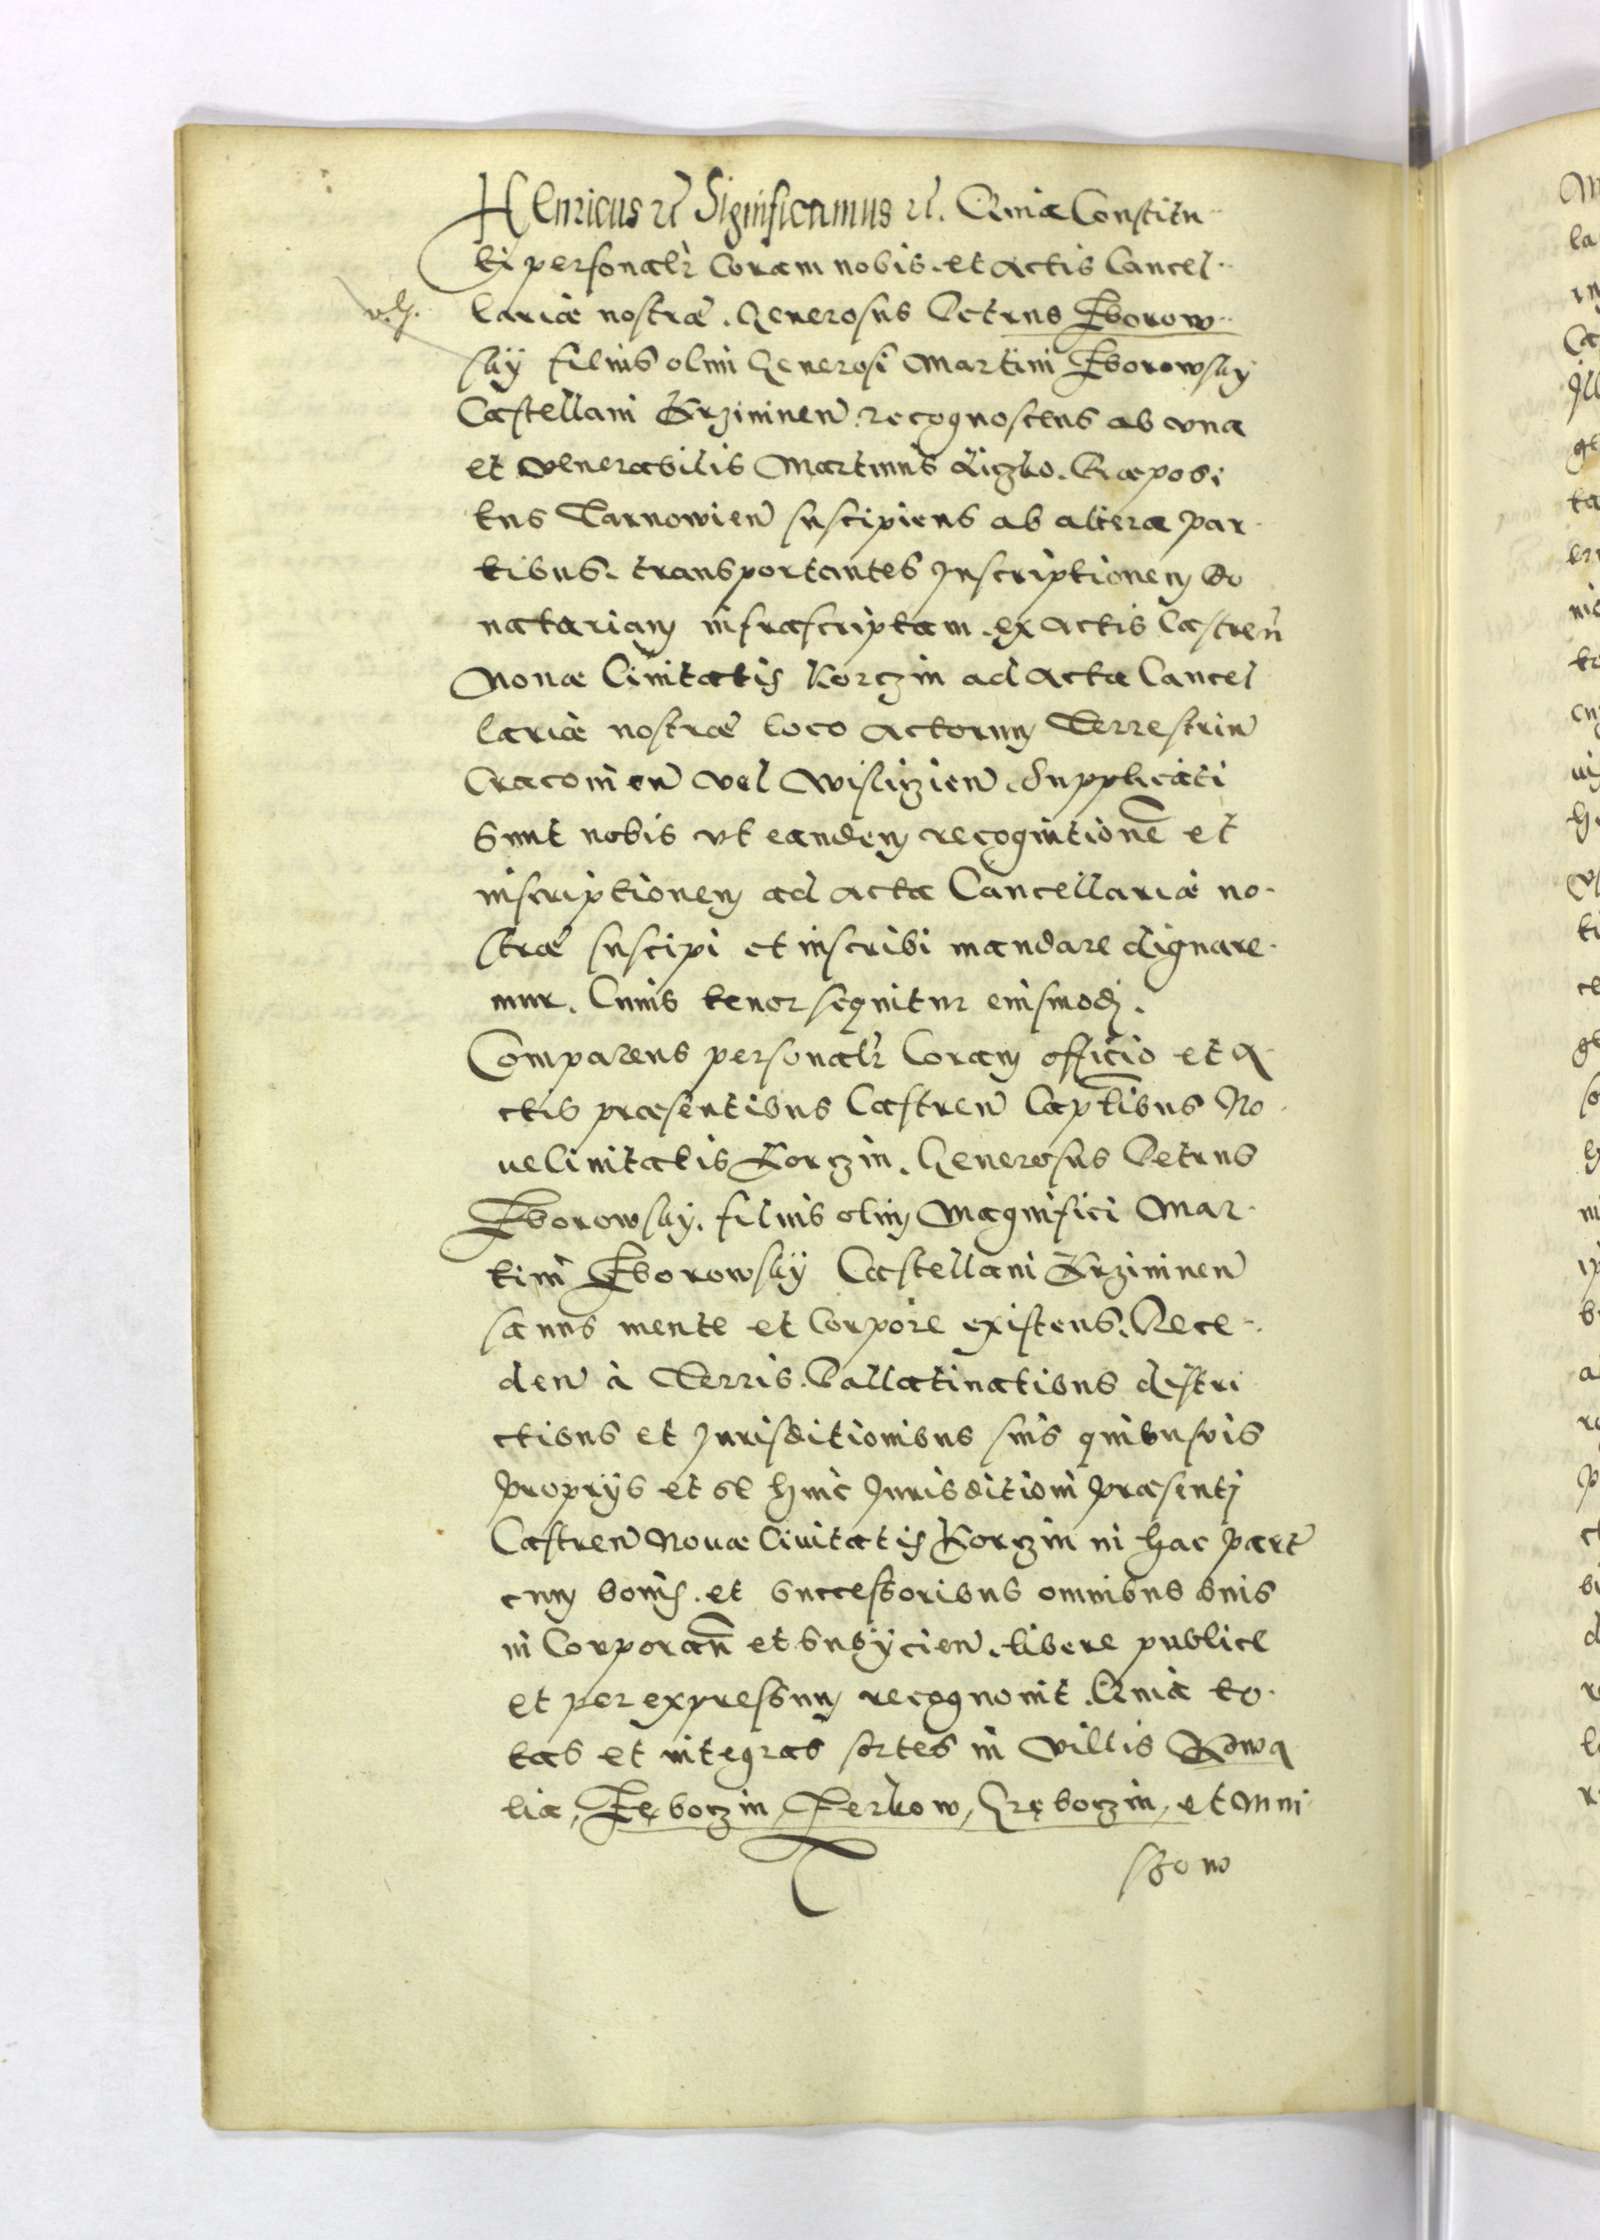 Henricus etc Significamus etc. Quia Constitu-
ti personalr Coram nobis et Actis Cancel-
lariæ nostræ. Generosus Petrus Zborow-
sky filius olim Generosi Martini Zborowsky
Castellani Krzivinen. recognoscens ab una
et Venerabilis Martinus Præposi
tus Tarnowien suscipiens ab altera par-
tibus. transportantes Inscriptionem do
natariam infrascriptam. ex Actis Castren
Nouæ Ciuitatis Korczin ad Acta Cancel
lariæ nostræ loco Actorum Terrestrium
Cracouien vel Wisliczien. Supplicati
sunt nobis vt eandem recognitionem et
inscriptionem ad Acta Cancellariæ no-
stræ suscipi et inscribi mandare dignare-
mur. Cuius tenor sequitur eiusmodi.
Comparens personalr Coram officio et A-
ctis præsentibus Castren Captlibus No-
ue Ciuitatis Korczin. Generosus Petrus
Zborowsky. filius olim Magnifici Mar-
tini Zborowsky Castellani Krzivinen
sanus mente et Corpore existens. Rece-
den à Terris. Pallatinatibus distri
ctibus et Jurisditionibus suis quibusvis
proprijs et se huic Jurisditioni præsenti
Castren Nouæ Ciuitatis Korczin in hac parte
cum bonis. et successoribus omnibus suis
in Corporan et subijcien. libere publice
et per expressum recognouit. Quia to-
tas et integras sortes in villis Kowa
lia, Zęborzin, Zerkow, Gręborzin, et Mni-
szow